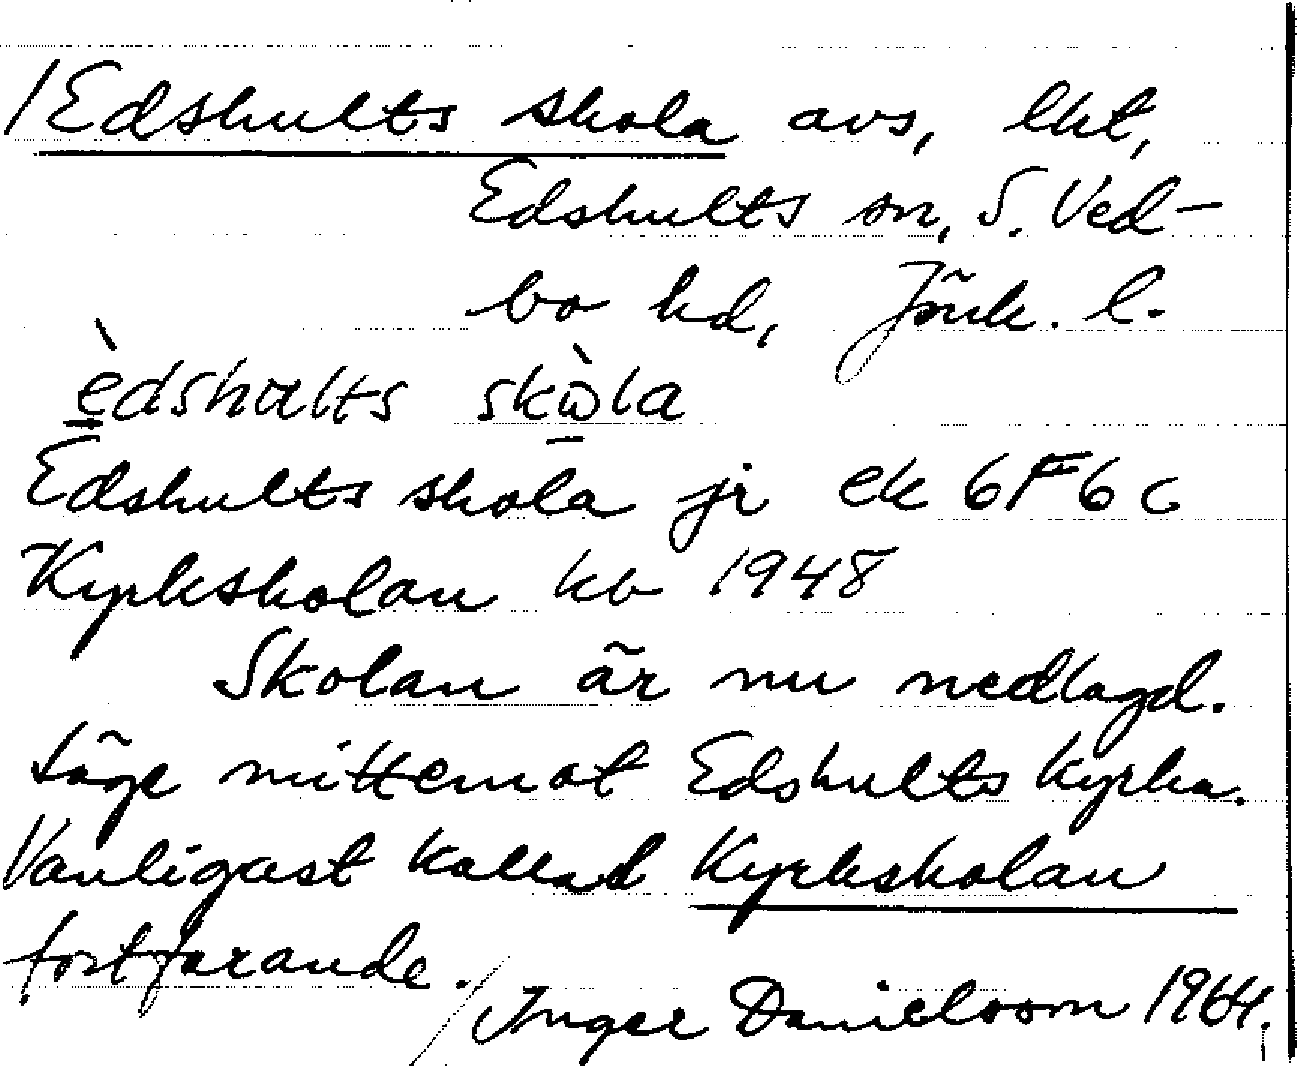 /Edshults skola avs, lkt,
Edshults sn, S. Ved-
bo hd, Jönk. l.
èdshalts skὼla
Edshults skola ji ek 6F6c
Kyrkskolan kb 1948
Skolan är nu nedlagd.
Läge mittemot Edshults kyrka.
Vanligast kallad Kyrkskolan
fortfarande.
/Inger Danielsson 1964.